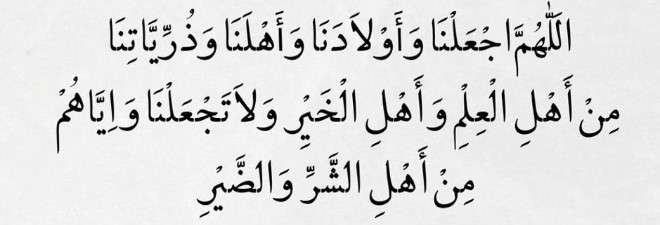 اَللّٰهُمَّ اجْعَلْنَا وَأَوْلاَدَنَا وَأَهْلَنَا وَذُرِّيَّاتِنَا
مِنْ أَهْلِ الْعِلْمِ وَأَهْلِ الْخَيْرِ وَلاَتَجْعَلْنَا وَاِيَّاهُمْ
مِنْ أَهْلِ الشَّرِّ وَالضَّيْرِ